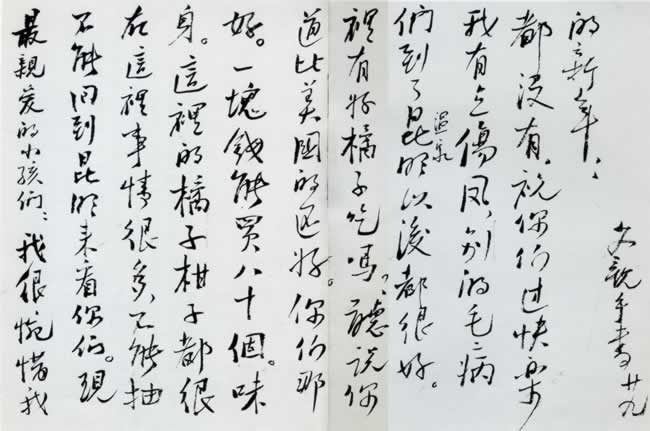 最親爱的小孩们：我很惋惜我
不能回到昆明来看你们。現
在這裡事情很多，不能抽
身。這裡的橘子柑子都很
好。一塊錢能買八十個。味
道比美國的还好。你们那
裡有好橘子吃嗎？聽说你
们到了昆明温泉以後都很好。
我有点傷风，别的毛病
都没有。祝你们过快樂
的新年！
父親手書 廿九